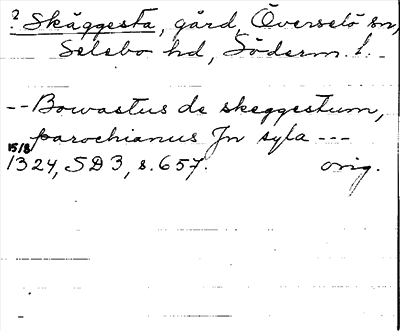 ? Skäggesta, gård, Överselö sn,
Selebo hd, Söderm. l.
-- Bowastus de skeggestum,
parochianus Jn syla ---
15/8
1324, SD3, s. 657. orig.